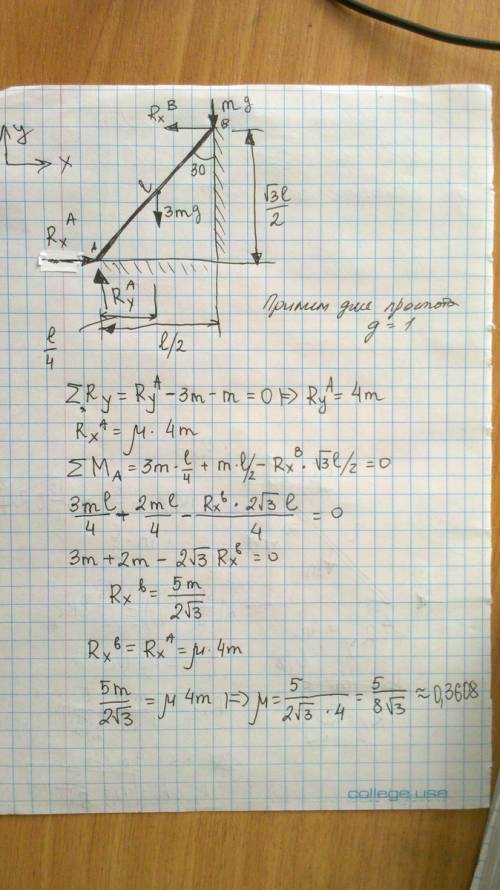 Rₓᴮ mg
y B
x 30
l
3mg √3l/2
Rₓᴬ A
R_yᴬ
Примем для простоты
g = 1
l/4 l/2
ΣR_y = R_yᴬ - 3m - m = 0 |⇒ R_yᴬ = 4m
Rₓᴬ = μ · 4m
ΣM_A = 3m · l/4 + m · l/2 - Rₓᴮ · √3l/2 = 0
3ml/4 + 2ml/4 - Rₓᴮ · 2√3 l/4 = 0
3m + 2m - 2√3 Rₓᴮ = 0
Rₓᴮ = 5m/2√3
Rₓᴮ = Rₓᴬ = μ · 4m
5m/2√3 = μ 4m |⇒ μ = 5/2√3 · 4 = 5/8√3 ≈ 0,3608
college.use